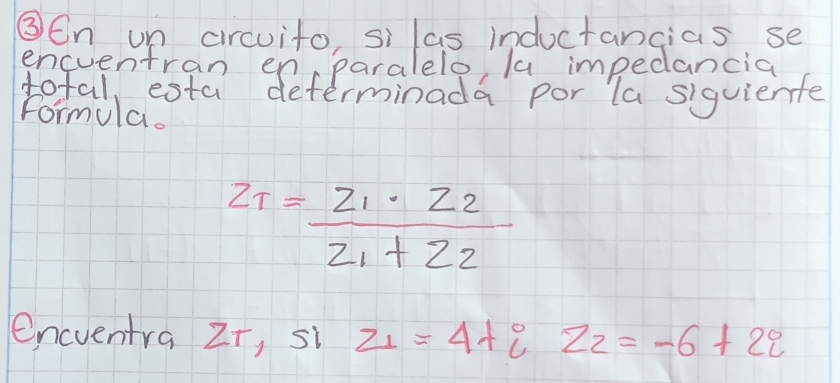 ③ En un circuito, si las inductancias se
encuentran en paralelo, la impedancia
total, esta determinada por la siguiente
Fórmula.
ZT = Z1 · Z2
Z1 + Z2
Encuentra ZT, si Z1 = 4+i Z2 = -6 + 2i